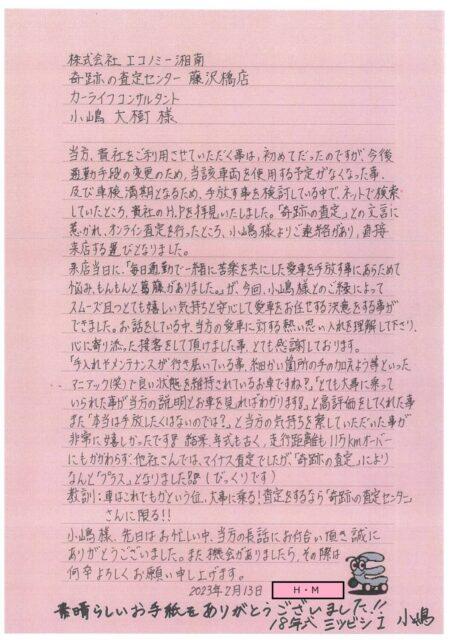 株式会社 エコノミー湘南
奇跡の査定センター 藤沢橋店
カーライフコンサルタント
小嶋 大樹 様
当方、貴社をご利用させていただく事は、初めてだったのですが、今後
通勤手段の変更のため、当該車両を使用する予定がなくなった事、
及び車検満期となるため、手放す事を検討している中で、ネットで検索
していたところ、貴社のH.Pを拝見いたしました。「奇跡の査定」との文言に
惹かれ、オンライン査定を行ったところ、小嶋様よりご連絡があり、直接
来店する運びとなりました。
来店当日に、「毎日通勤で一緒に苦楽を共にした愛車を手放す事にあらためて
悩み、もんもんと葛藤がありました。」が、今回、小嶋様とのご縁によって
スムーズ且つとても嬉しい気持ちと安心して愛車をお任せする決意をする事が
できました。お話をしている中、当方の愛車に対する熱い思い入れを理解して下さり、
心に寄り添った接客をして頂けました事、とても感謝しております。
「手入れやメンテナンスが行き届いている事、細かい箇所の手の加えよう等といった
マニアック(笑)で良い状態を維持されているお車ですね?」「とても大事に乗って
いられた事が当方の説明とお車を見ればわかります!!」と高評価をしてくれた事
また「本当は手放したくはないのでは?」と当方の気持ちを察していただいた事が
非常に嬉しかったです!! 結果、年式も古く、走行距離も11万kmオーバー
にもかかわらず、他社さんでは、マイナス査定でしたが、「奇跡の査定」により
なんと「プラス」となりました!!!! (びっくりです)
教訓:車はこれでもかという位、大事に乗る!査定をするなら「奇跡の査定センター」
さんに限る!!
小嶋様、先日はお忙しい中、当方の長話にお付合い頂き誠に
ありがとうございました。また機会がありましたら、その際は
何卒よろしくお願い申し上げます。
2023年2月13日 H・M
素晴らしいお手紙をありがとうございました!! 小嶋
18年式 ミツビシ I